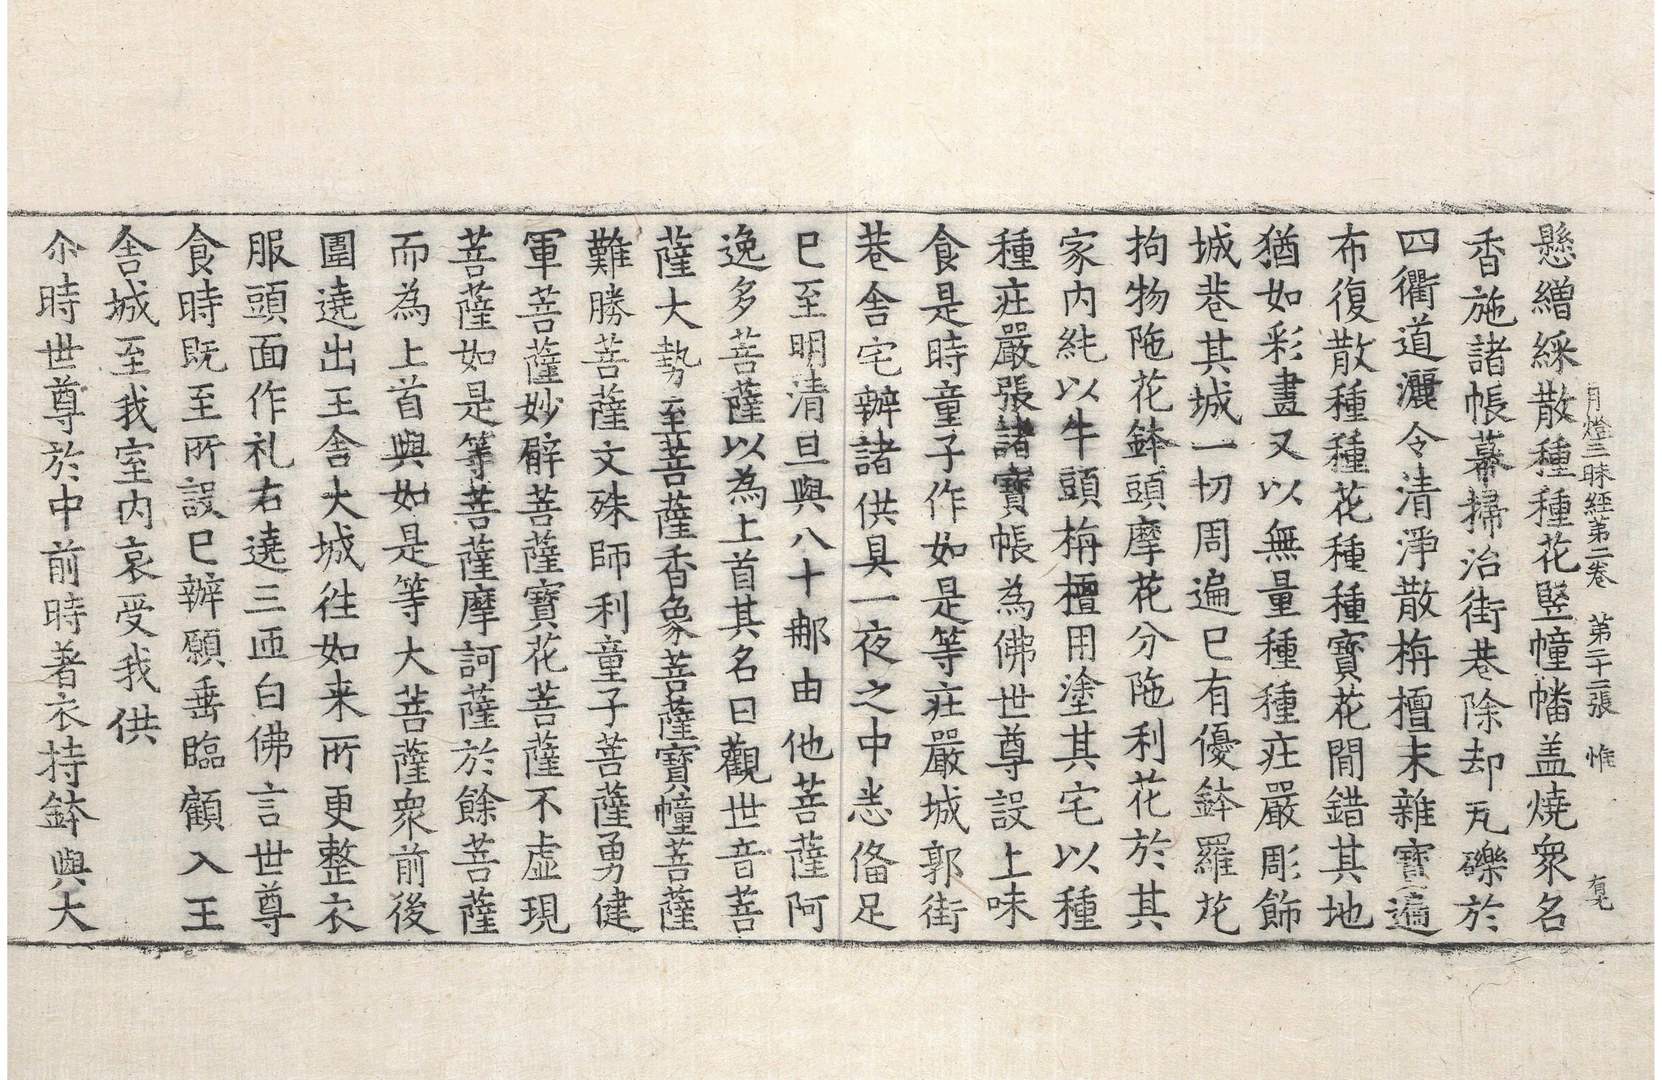 月燈三昧経第二卷 第二十二張 惟
懸繒綵散種種花竪幢幡盖燒衆名
香施諸帳幕掃治街巷除却瓦礫於
四衢道灑令清淨散栴檀末雜寶遍
布復散種種花種種寶花間錯其地
猶如彩畫又以無量種種疘嚴彫飾
城巷其城一切周遍已有優鉢羅花
拘物陁花鉢頭摩花分陁利花於其
家内純以牛頭栴檀用塗其宅以種
種疘嚴張諸寶帳為佛世尊設上味
食是時童子作如是等疘嚴城郭街
巷舍宅辦諸供具一夜之中悉俻足
已至明清旦與八十那由他菩薩阿
逸多菩薩以為上首其名曰觀世音菩
薩大勢至菩薩香象菩薩寶幢菩薩
難勝菩薩文殊師利童子菩薩勇健
軍菩薩妙辟菩薩寶花菩薩不虛現
菩薩如是等菩薩摩訶薩於餘菩薩
而為上首與如是等大菩薩衆前後
圍遶出王舍大城徃如来所更整衣
服頭面作礼右遶三匝白佛言世尊
食時既至所設已辦願垂臨顧入王
舍城至我室内哀受我供
尒時世尊於中前時著衣持鉢與大